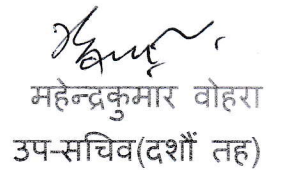 महेन्द्रकुमार वोहरा
उप-सचिव(दशौं तह)